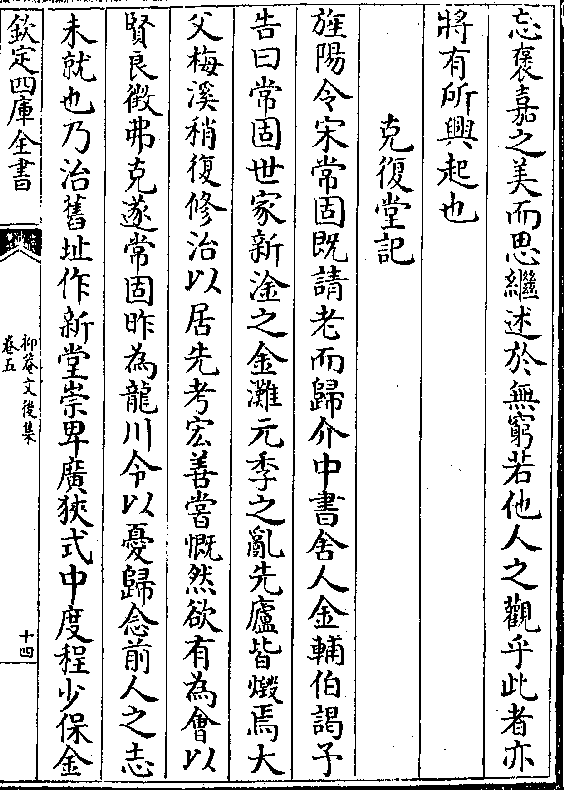 忘褒嘉之美而思繼述於無窮若他人之觀乎此者亦
將有所興起也
克復堂記
旌陽令宋常固既請老而歸介中書舍人金輔伯謁予
告曰常固世家新淦之金灘元季之亂先廬皆燬焉大
父梅溪稍復修治以居先考宏善嘗慨然欲有為會以
賢良徴弗克遂常固昨為龍川令以憂歸念前人之志
未就也乃治舊址作新堂崇卑廣狹式中度程少保金
欽定四庫全書
抑菴文後集
卷五
十四